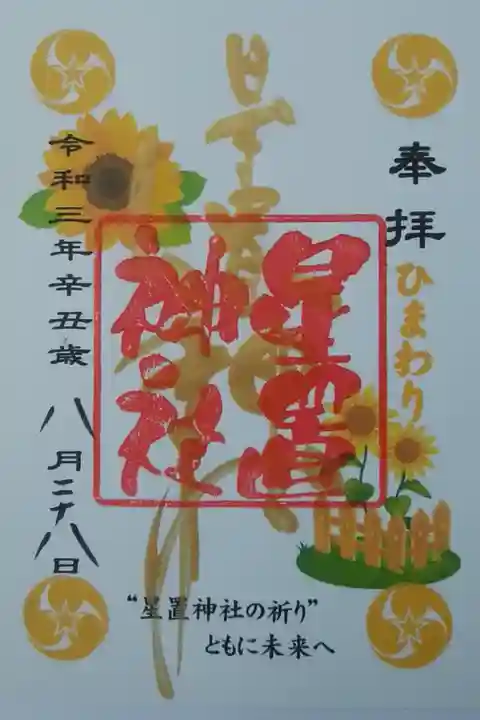 奉拝
ひまわり
星置神社
星置
神社
令和三年辛丑歳
八月二十八日
“星置神社の祈り”
ともに未来へ